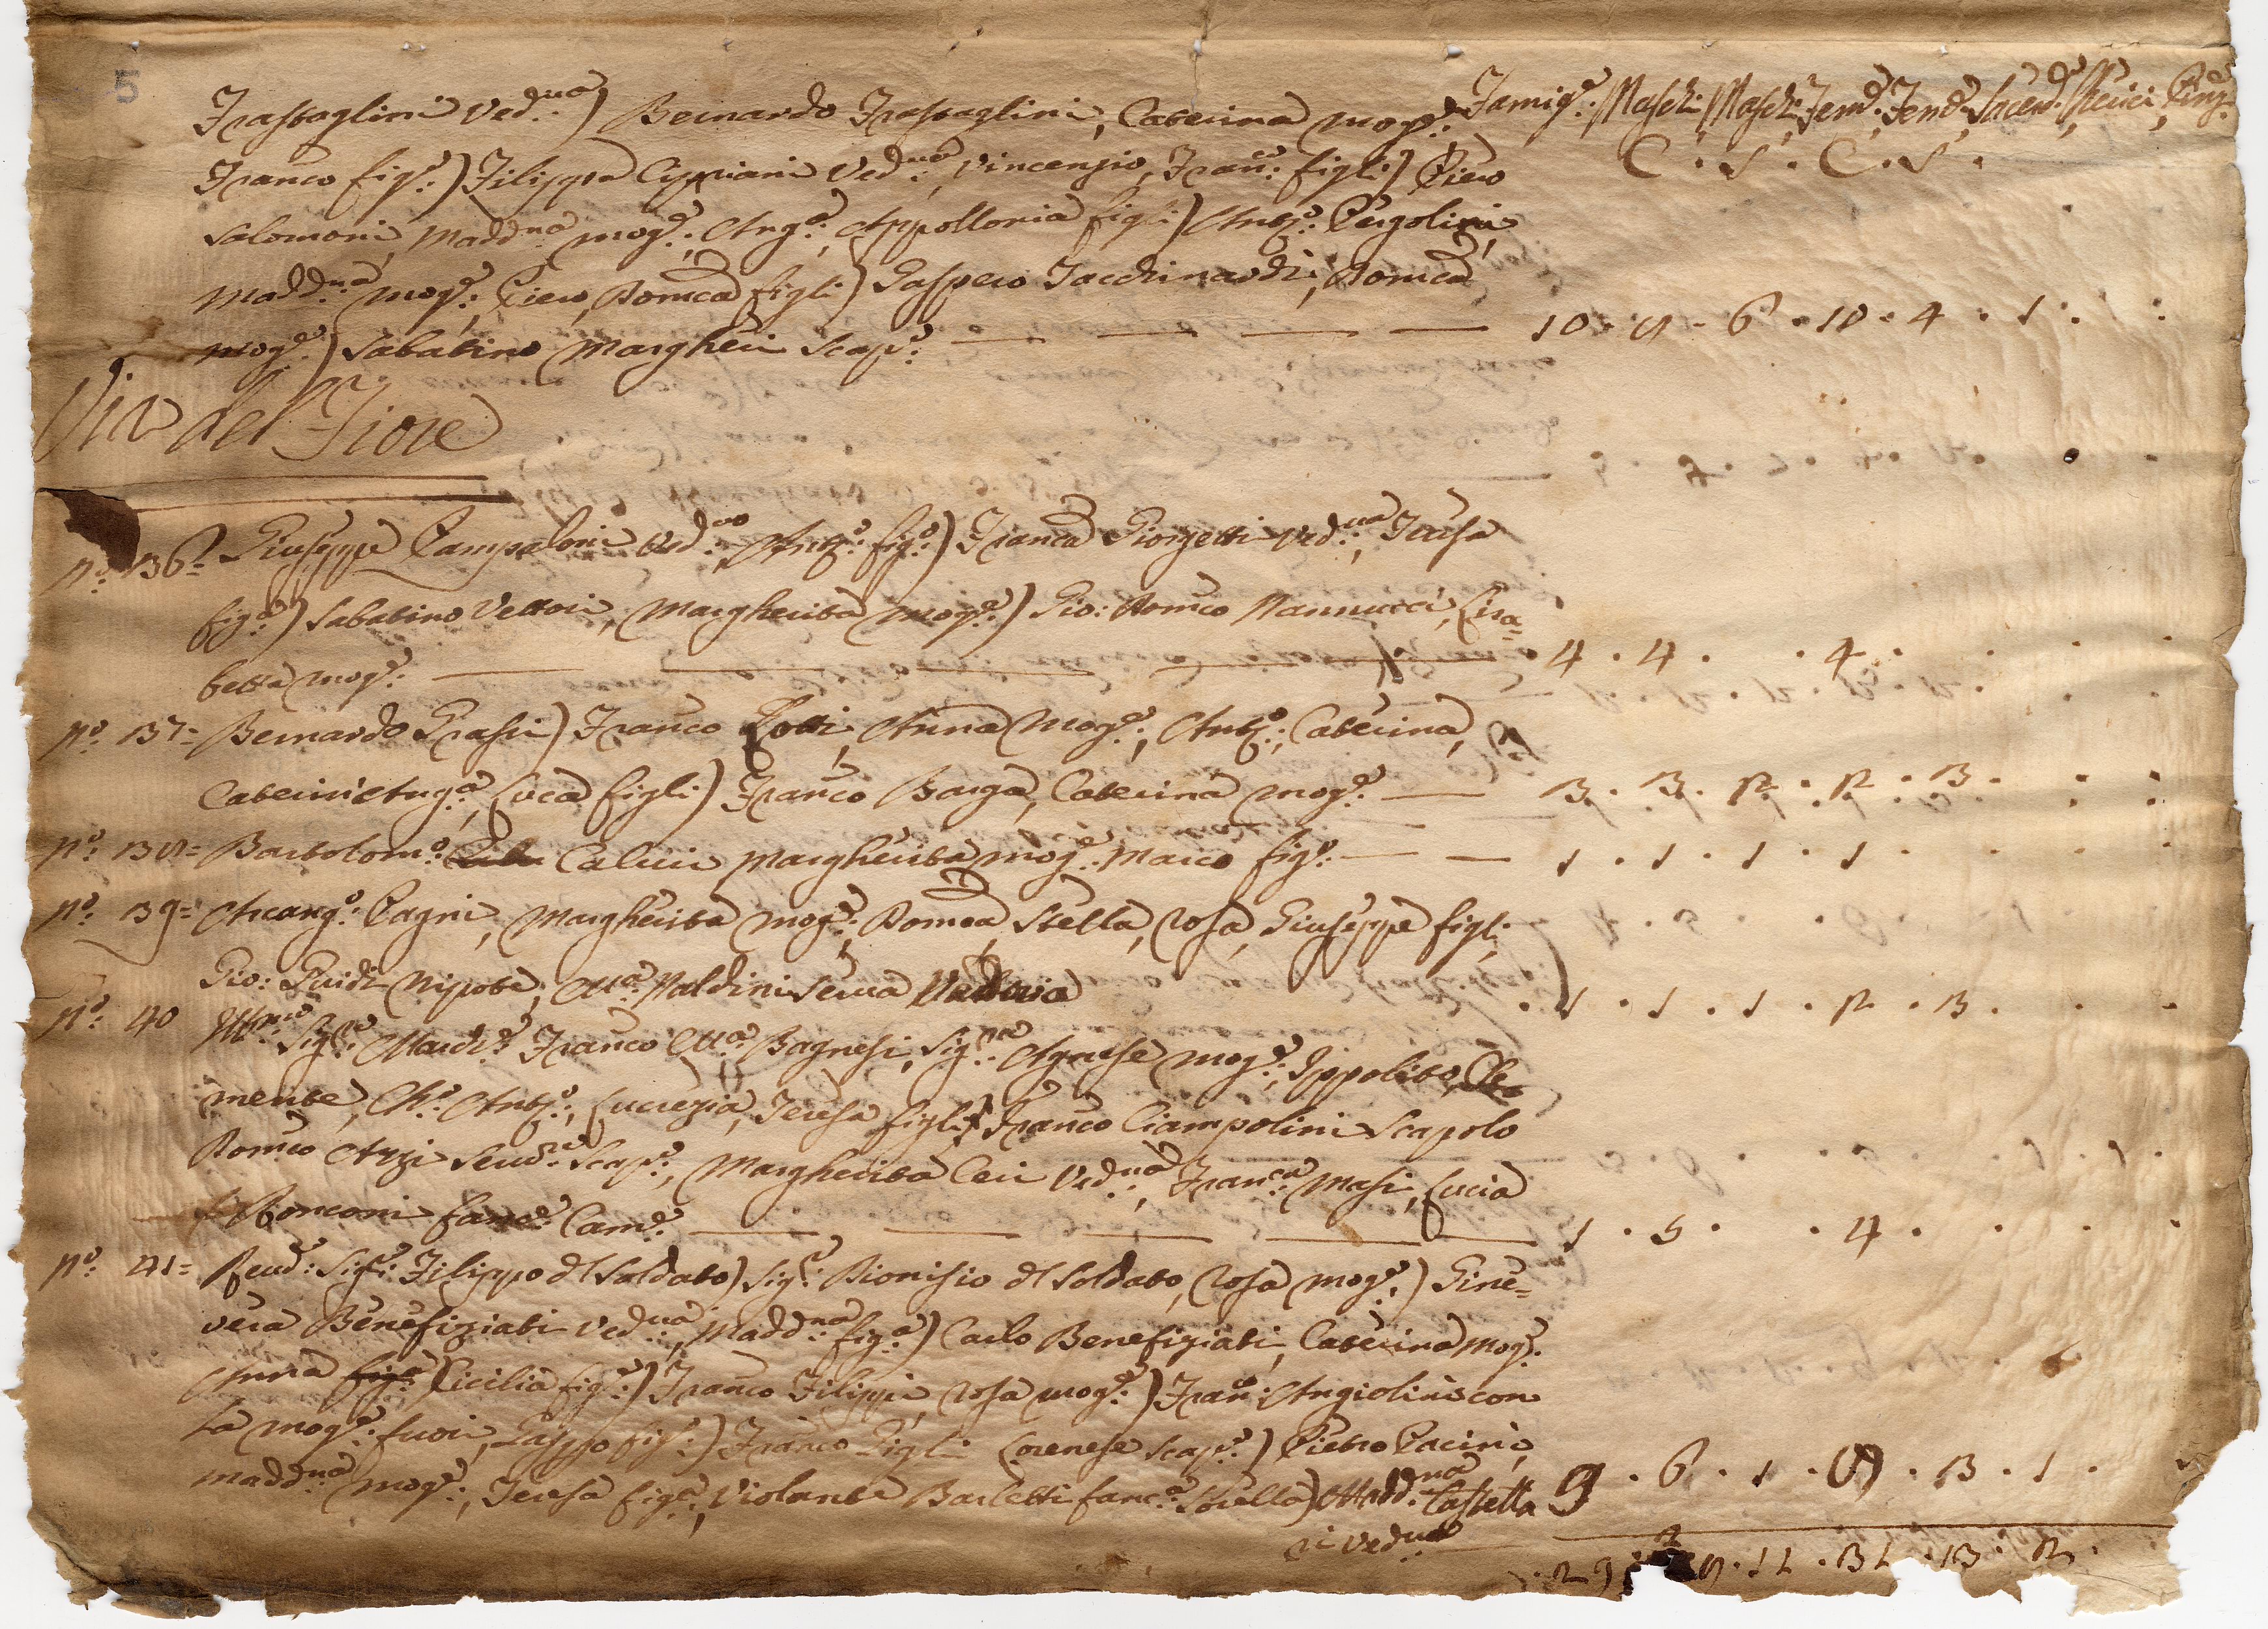 5
Frastaglini Ved:ua) Bernardo Frastaglini, Caterina mog:e Famig:e Maschi, Maschi, Fem:e Fem:e Sacerd:
Franco fig:o) Filippa Cipriani Ved:ua, Vincenzio, Fran:co figli) Piero C. S. C. S.
Salomoni, Madd:na mog:e, Ang:a, Appollonia figli) Ant:o Pergolini,
Madd:na mog:e, Piero, Dom:ca figli) Gaspero Facchinardi, Dom:ca
mog:e) Sabatino Margheri Scap:o 10 . 8 . 6 . 10 . 4 . 1 .
Via del Fiore
N:o 36= Giuseppe Pampaloni Ved:uo, Ant:o fig:o) Fran:ca Giorgetti Ved:ua, Teresa
fig:a) Sabatino Vettori, Margherita mog:e) Gio: Dom:co Nannucci, Lisa=
betta mog:e 4 . 4 . . 4 .
N:o 37= Bernardo Grassi) Franco Lotti, Anna mog:e, Ant:o, Caterina,
Caterina Ang:a, Luca figli) Franco Barga, Caterina mog:e 3 . 3 . 2 . 2 . 3 .
N:o 38= Bartolom:o Calucci Margherita mog:e Marco fig:o 1 . 1 . 1 . 1 .
N:o 39= Arcang:o Pagni, Margherita mog:e, Dom:ca Stella, Rosa, Giuseppe figli,
Gio: Guidi Nipote, M:a Naldini Serva 1 . 1 . 1 . 2 . 3 .
N:o 40 Ill:mo Sig:re March:e Franco M:a Bagnesi, Sig:ra Agnese mog:e, Ippolito, Cle
mente, Ant:o, Lucrezia, Teresa figli) Franco Ciampolini Scapolo
Dom:co Serv:re Scap:o, Margherita Ceri Ved:ua, Fran:ca Masi, Lucia
Ronconi Cam:e 1 . 5 . . 4 .
N:o 41= Reud: Sig:r Filippo del Soldato) Sig:r Dionisio del Soldato, Rosa mog:e) Gine=
vera Benefiziati Ved:ua, Madd:na fig:a) Carlo Benefiziati, Caterina mog:e
Anna fig:a Cicilia fig:e) Franco Filippi, Rosa mog:e) Fran:co Angiolini con
la mog:e fuori, fig:o) Franco Gigli Lorenese Scap:o) Pietro Pacini,
Madd:na mog:e, Teresa fig:a, Violante Barletti fanc:a Madd:na Castella 9 . 6 . 1 . 8 . 3 . 1 .
ni Ved:ua
29 11 . 31 . 13 . 2 .